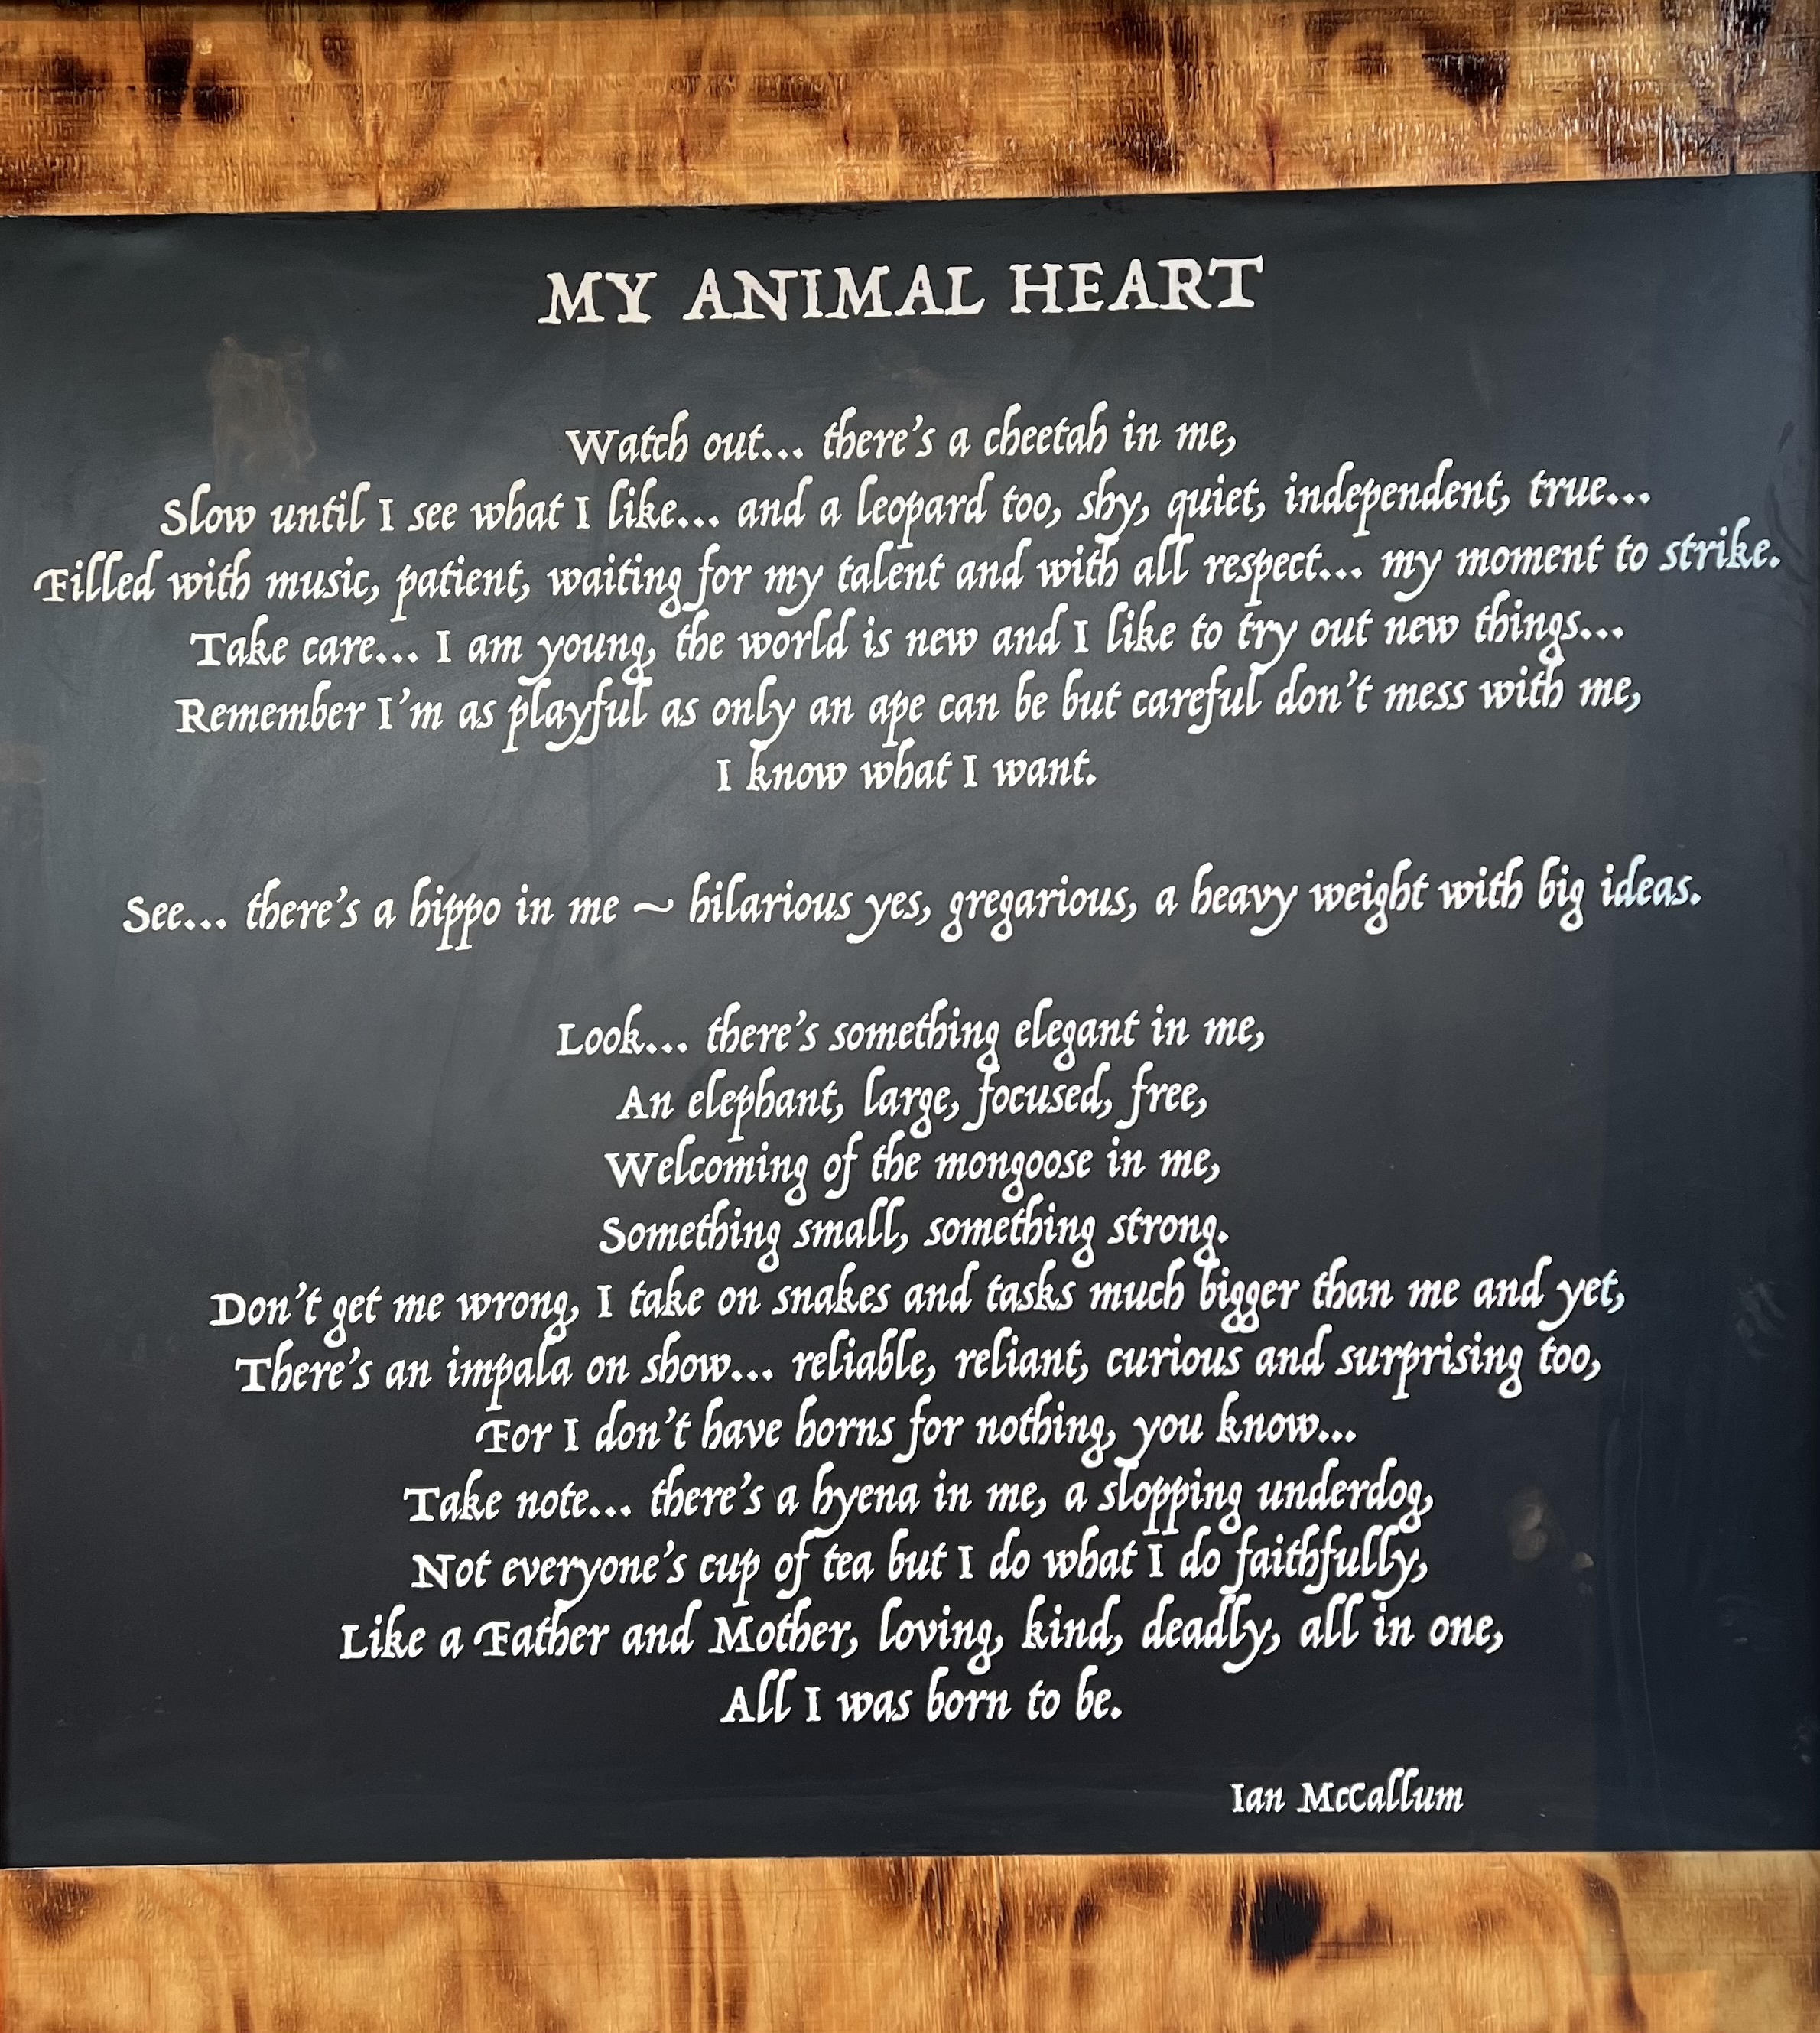 MY ANIMAL HEART
Watch out... there's a cheetah in me,
Slow until I see what I like... and a leopard too, shy, quiet, independent, true...
Filled with music, patient, waiting for my talent and with all respect... my moment to strike.
Take care... I am young, the world is new and I like to try out new things...
Remember I'm as playful as only an ape can be but careful don't mess with me,
I know what I want.
See... there's a hippo in me ~ hilarious yes, gregarious, a heavy weight with big ideas.
Look... there's something elegant in me,
An elephant, large, focused, free,
Welcoming of the mongoose in me,
Something small, something strong.
Don't get me wrong, I take on snakes and tasks much bigger than me and yet,
There's an impala on show... reliable, reliant, curious and surprising too,
For I don't have horns for nothing, you know...
Take note... there's a hyena in me, a slopping underdog,
Not everyone's cup of tea but I do what I do faithfully,
Like a Father and Mother, loving, kind, deadly, all in one,
All I was born to be.
Ian McCallum